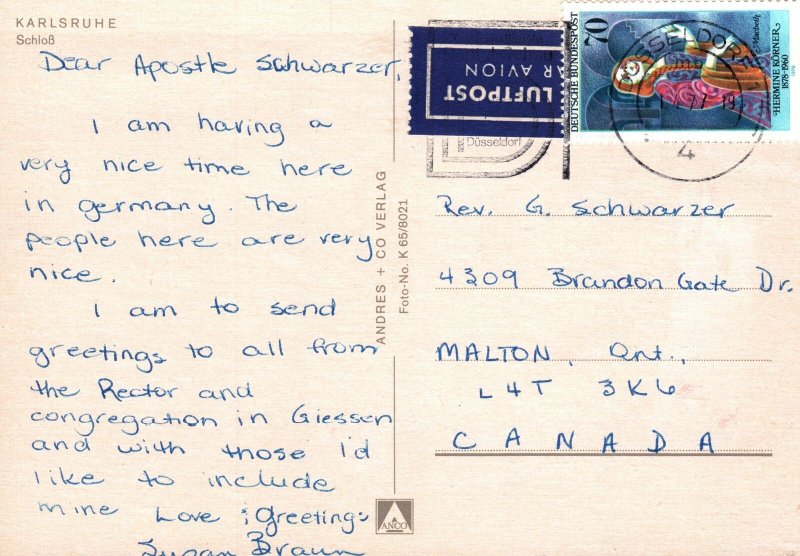 KARLSRUHE
Schloß
Dear Apostle Schwarzer,
I am having a
very nice time here
in germany. The
people here are very
nice.
I am to send
greetings to all from
the Rector and
congregation in Giessen
and with those I'd
like to include
mine Love & Greetings
Susan Braun
ANDRES + CO VERLAG
Foto-No. K 65/8021
ANCO
LUFTPOST
PAR AVION
Düsseldorf
DEUTSCHE BUNDESPOST
70
Macbeth
HERMINE KÖRNER
1878-1960
4
Rev. G. Schwarzer
4309 Brandon Gate Dr.
MALTON, Ont.,
L4T 3K6
CANADA